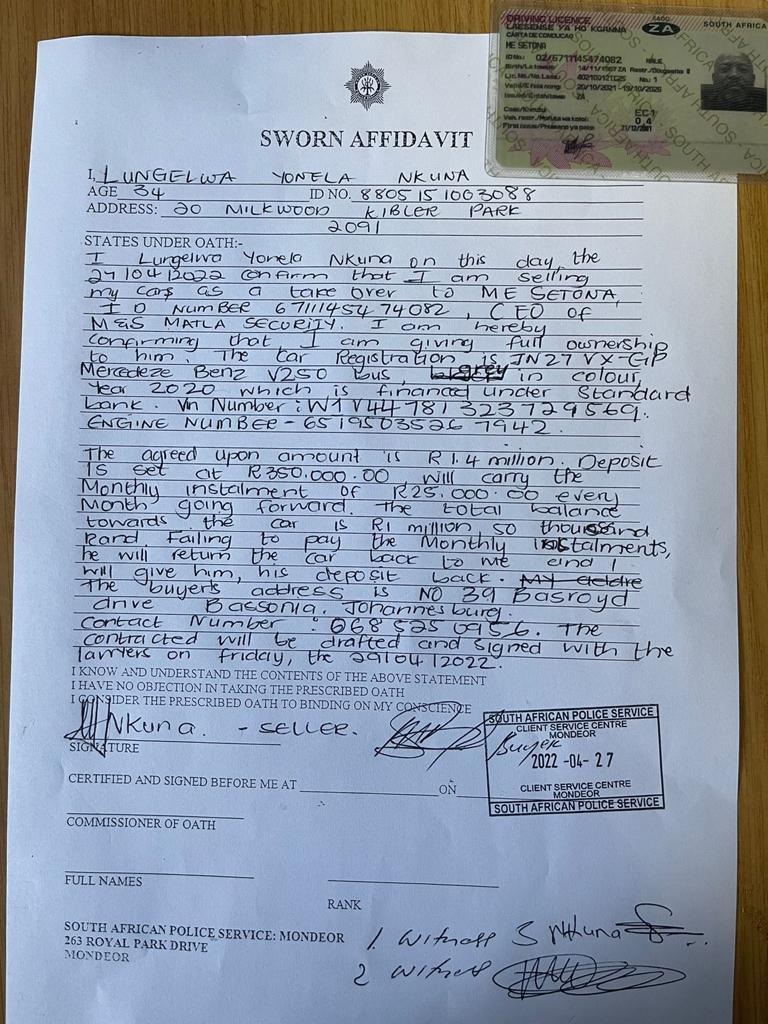 DRIVING LICENCE
SADC
ZA
SOUTH AFRICA
LAESENSE YA HO KGANNA
CARTA DE CONDUCAO
ME SETONA
ID No. 02/6711145474082 MALE
14/11/1967 ZA
No. 1
20/10/2021 - 19/10/2026
ZA
EC1
0 4
21/12/2001
SWORN AFFIDAVIT
I, LUNGELWA YONELA NKUNA
AGE 34 ID NO. 8805151003088
ADDRESS: 20 MILKWOOD KIBLER PARK
2091
STATES UNDER OATH:-
I Lungelwa Yonela Nkuna on this day, the
27/04/2022 confirm that I am selling
my cars as a take over to ME SETONA,
I D Number 6711145474082, CEO of
M&S MATLA SECURITY. I am hereby
confirming that I am giving full ownership
to him. The car Registration is JN27 VX-GP
Mercedeze Benz V250 bus, grey in colour,
Year 2020 which is financed under Standard
bank. Vin Number: W1V44781323729569.
ENGINE NUMBER - 65195035267942.
The agreed upon amount is R1.4 million. Deposit
is set at R350.000.00 Will carry the
Monthly instalment of R25.000.00 every
Month going forward. The total balance
towards the car is R1 million 50 thousand
Rand. Failing to pay the Monthly instalments,
he will return the car back to me and I
will give him, his deposit back. My addre
The buyers address is NO 39 Basroyd
drive Bassonia, Johannesburg.
Contact Number : 068 525 0956. The
contracted will be drafted and signed with the
lawyers on Friday, the 29/04/2022.
I KNOW AND UNDERSTAND THE CONTENTS OF THE ABOVE STATEMENT
I HAVE NO OBJECTION IN TAKING THE PRESCRIBED OATH
I CONSIDER THE PRESCRIBED OATH TO BINDING ON MY CONSCIENCE
Nkuna - SELLER.
SIGNATURE
SOUTH AFRICAN POLICE SERVICE
CLIENT SERVICE CENTRE
MONDEOR
Buyer
2022 -04- 27
CLIENT SERVICE CENTRE
MONDEOR
SOUTH AFRICAN POLICE SERVICE
CERTIFIED AND SIGNED BEFORE ME AT ON
COMMISSIONER OF OATH
FULL NAMES
RANK
SOUTH AFRICAN POLICE SERVICE: MONDEOR
263 ROYAL PARK DRIVE
MONDEOR
1 Witness S Nkuna
2 Witness